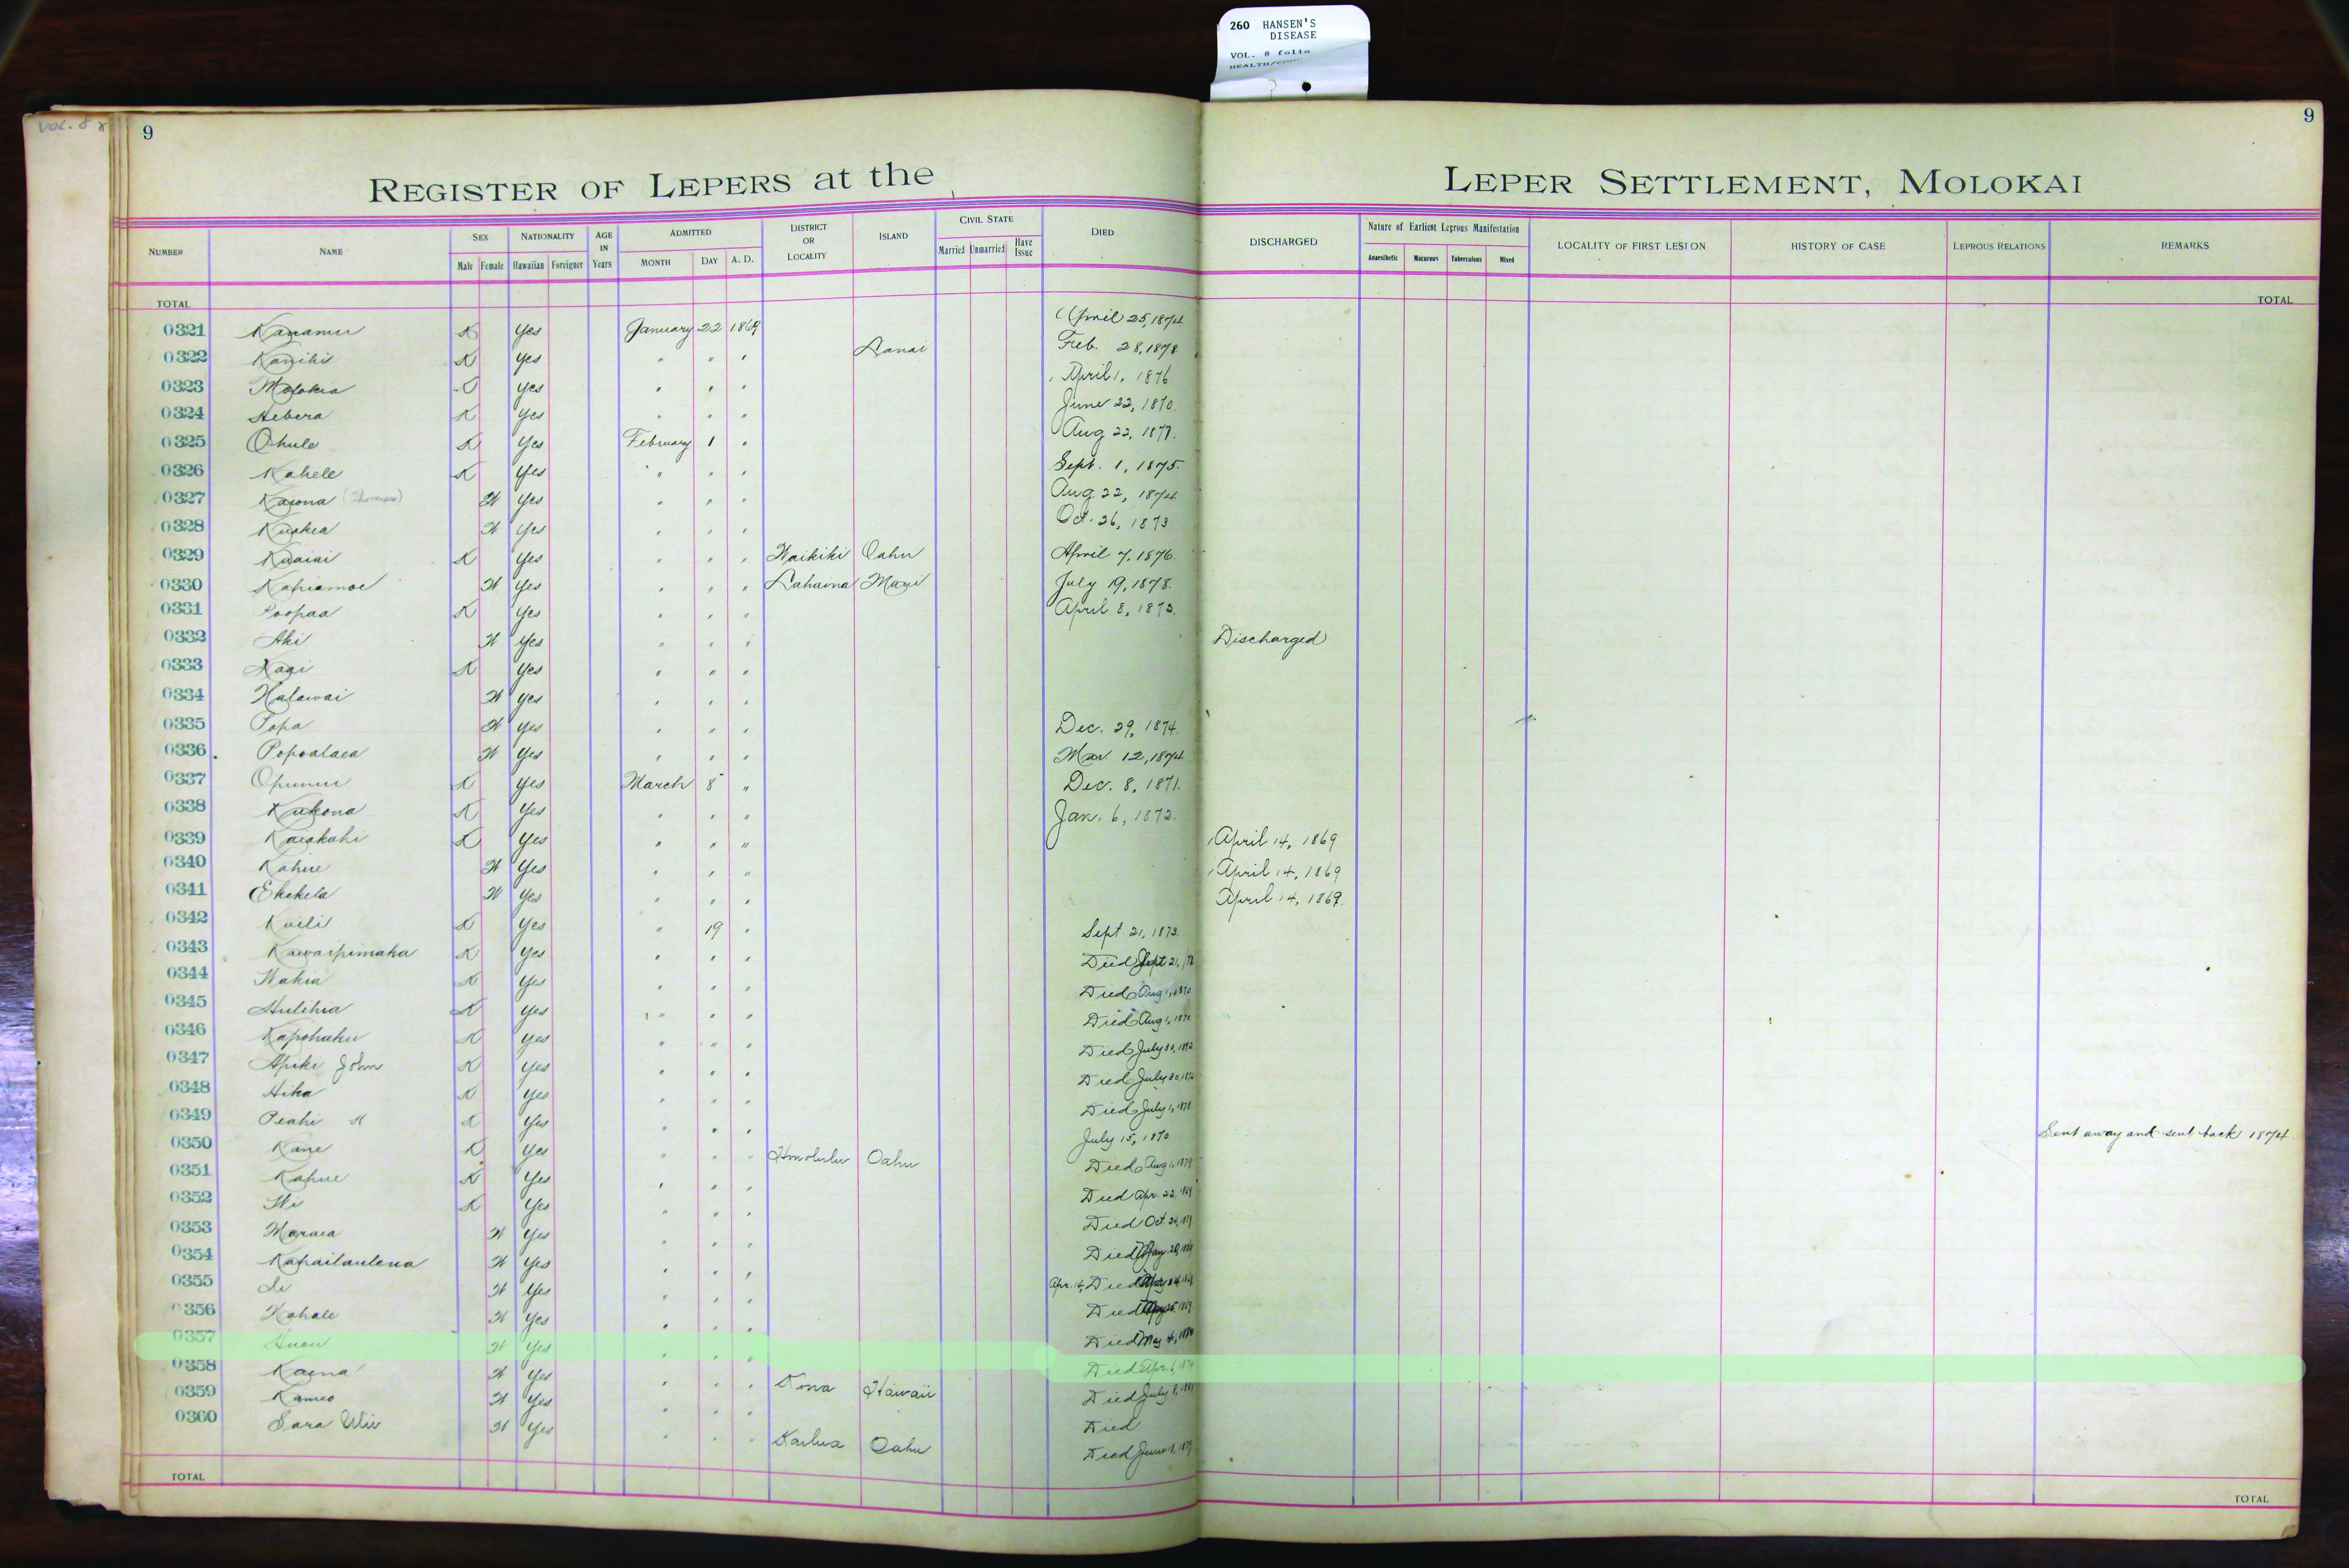 260 HANSEN'S
DISEASE
VOL. 8 folio
VOL. 8
9
9
REGISTER OF LEPERS at the LEPER SETTLEMENT, MOLOKAI
NUMBER NAME SEX NATIONALITY AGE IN Years ADMITTED DISTRICT OR LOCALITY ISLAND CIVIL STATE DIED DISCHARGED Nature of Earliest Leprous Manifestation LOCALITY OF FIRST LESION HISTORY OF CASE LEPROUS RELATIONS REMARKS
Male Female Hawaiian Foreigner MONTH DAY A. D. Married Unmarried Have Issue Anaesthetic Macurous Tuberculous Mixed
TOTAL TOTAL
0321 Kanamu K Yes January 22 1869 April 25, 1874
0322 Kanihi K Yes " " " Lanai Feb. 28, 1878
0323 Molokia Yes " " " April 1, 1876
0324 Hebera K Yes " " " June 22, 1870
0325 Ohule K Yes February 1 " Aug 22, 1877.
0326 Kahele K Yes " " " Sept. 1, 1875.
0327 Kaiona (Thomas) W Yes " " " Aug. 22, 1874
0328 W Yes " " " Oct. 26, 1873
0329 Kuaiai K Yes " " " Waikiki Oahu April 7, 1876.
0330 Kahiamoe W Yes " " " Lahaina Maui July 19, 1878.
0331 Poopaa K Yes " " " April 8, 1873.
0332 Aki W Yes " " " Discharged
0333 K Yes " " "
0334 Halawai W Yes " " "
0335 Popa W Yes " " " Dec. 29, 1874.
0336 Popoalaea W Yes " " " Mar 12, 1874
0337 Opunui K Yes March 8 " Dec. 8, 1871.
0338 Kukona K Yes " " " Jan. 6, 1872.
0339 Kaiakahi K Yes " " " April 14, 1869
0340 Kahue W Yes " " " April 14, 1869
0341 Ekekela W Yes " " " April 14, 1869.
0342 Kuili K Yes " 19 " Sept. 21, 1873.
0343 Kawaipimaka K Yes " " " Died Sept 21,
0344 Wahia K Yes " " " Died Aug 1, 1870
0345 Hulihia K Yes " " " Died Aug 1, 1870
0346 Kapohaku K Yes " " " Died July 30, 1872
0347 Apiki John K Yes " " " Died July 30, 1872
0348 Hika K Yes " " " Died July 1, 1878
0349 Peahi K Yes " " " July 15, 1870. Sent away and sent back 1874.
0350 Kane K Yes " " " Honolulu Oahu Died Aug 1, 1879
0351 Kahue K Yes " " " Died Apr. 22, 1869
0352 K Yes " " " Died Oct. 24,
0353 Maraea W Yes " " " Died
0354 Kahailaulena W Yes " " " Apr. 14, Died
0355 W Yes " " " Died
0356 W Yes " " " Died May 4,
0357 W Yes " " " Died Apr. 6, 1874
0358 Kaena W Yes " " " Kona Hawaii Died July 8,
0359 Kameo W Yes " " " Died
0360 Sara W Yes " " " Kailua Oahu Died June
TOTAL TOTAL